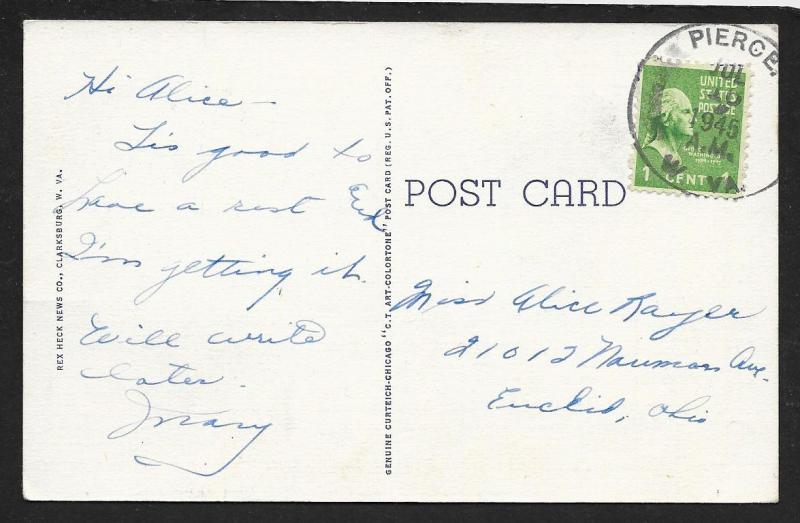 Hi Alice –
Tis good to
have a rest and
I'm getting it.
Will write
later.
Mary
REX HECK NEWS CO., CLARKSBURG, W. VA.
GENUINE CURTEICH-CHICAGO "C.T. ART-COLORTONE" POST CARD (REG. U.S. PAT. OFF.)
POST CARD
PIERCE,
JUL
1945
A.M.
W. VA.
UNITED
STATES
POSTAGE
1 CENT 1
Miss Alice Rayer
21012 Nauman Ave.
Euclid, Ohio